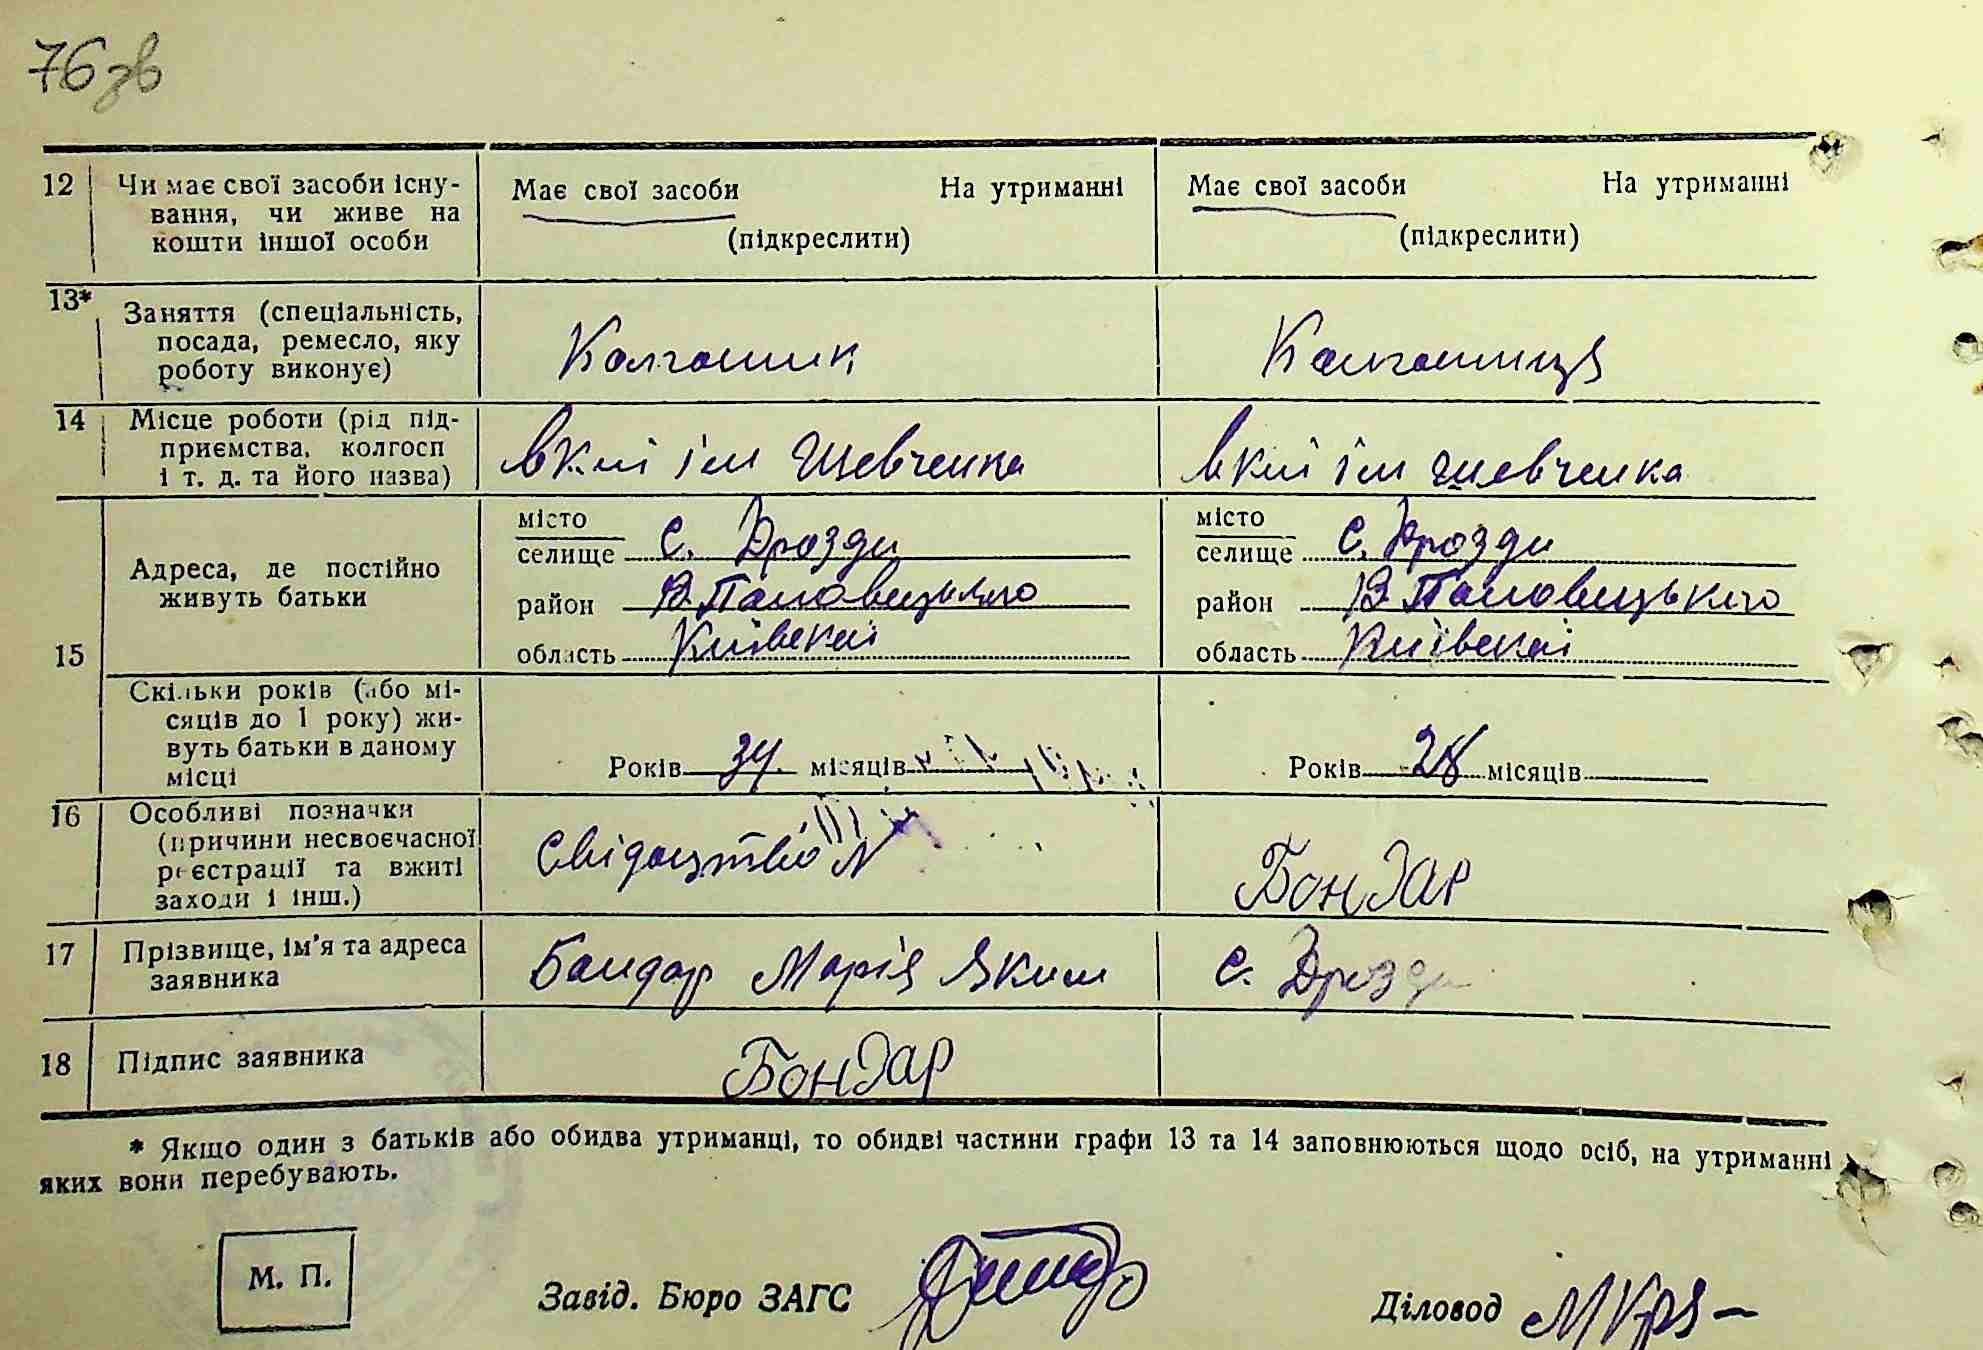 76зв
12 Чи має свої засоби існу-
вання, чи живе на
кошти іншої особи
Має свої засоби На утриманні
(підкреслити)
Має свої засоби На утриманні
(підкреслити)
13* Заняття (спеціальність,
посада, ремесло, яку
роботу виконує)
Колгошник
Колгошниця
14 Місце роботи (рід під-
приємства, колгосп
і т. д. та його назва)
ім Шевченка
ім Шевченка
15
Адреса, де постійно
живуть батьки
місто
селище с. Дрозди
район В. Половецького
область Київської
місто
селище с. Дрозди
район В. Половецького
область Київської
Скільки років (або мі-
сяців до 1 року) жи-
вуть батьки в даному
місці
Років 34 місяців
Років 28 місяців
16 Особливі позначки
(причини несвоєчасної
реєстрації та вжиті
заходи і інш.)
Свідоцтво N
Бондар
17 Прізвище, ім'я та адреса
заявника
Бондар Марія Яким
с. Дрозди
18 Підпис заявника
Бондар
* Якщо один з батьків або обидва утриманці, то обидві частини графи 13 та 14 заповнюються щодо осіб, на утриманні
яких вони перебувають.
М. П.
Завід. Бюро ЗАГС
Діловод